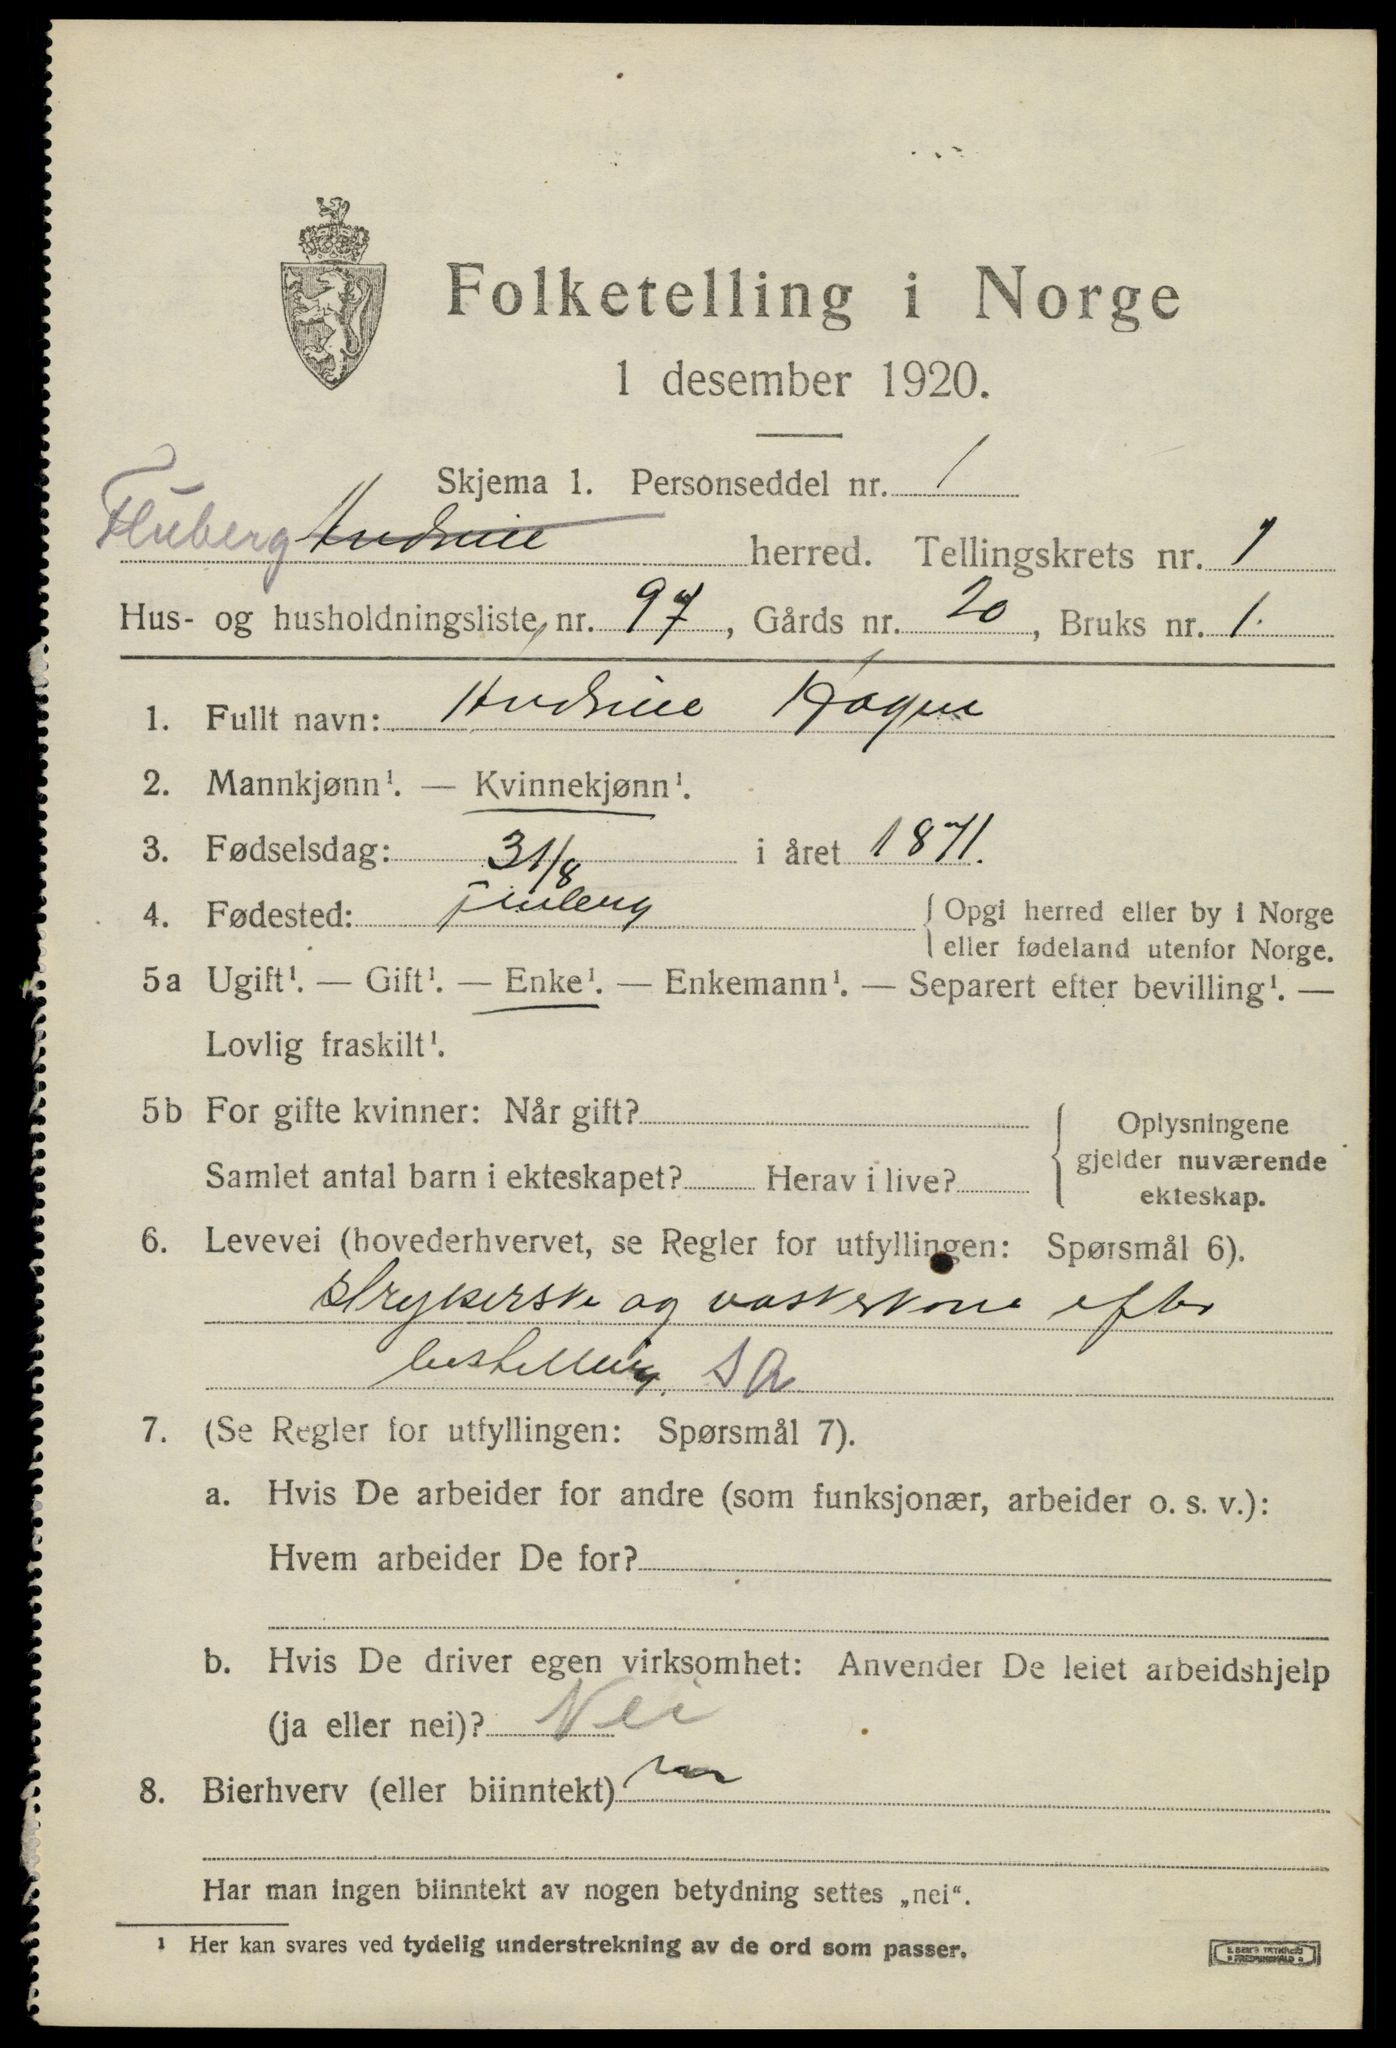 Folketelling i Norge
1 desember 1920.
Skjema 1. Personseddel nr. 1
Fluberg Andrine herred. Tellingskrets nr. 1
Hus- og husholdningsliste nr. 97, Gårds nr. 20, Bruks nr. 1.
1. Fullt navn: Andrine Hagen
2. Mannkjønn¹. — Kvinnekjønn¹.
3. Fødselsdag: 31/8 i året 1871.
4. Fødested: Fluberg { Opgi herred eller by i Norge
eller fødeland utenfor Norge.
5a Ugift¹. — Gift¹. — Enke¹. — Enkemann¹. — Separert efter bevilling¹. —
Lovlig fraskilt¹.
5b For gifte kvinner: Når gift?
Samlet antal barn i ekteskapet? Herav i live?
{ Oplysningene
gjelder nuværende
ekteskap.
6. Levevei (hovederhvervet, se Regler for utfyllingen: Spørsmål 6).
Strykerske og vaskekone efter
bestilling. SA
7. (Se Regler for utfyllingen: Spørsmål 7).
a. Hvis De arbeider for andre (som funksjonær, arbeider o. s. v.):
Hvem arbeider De for?
b. Hvis De driver egen virksomhet: Anvender De leiet arbeidshjelp
(ja eller nei)? Nei
8. Bierhverv (eller biinntekt)
Har man ingen biinntekt av nogen betydning settes „nei“.
¹ Her kan svares ved tydelig understrekning av de ord som passer.